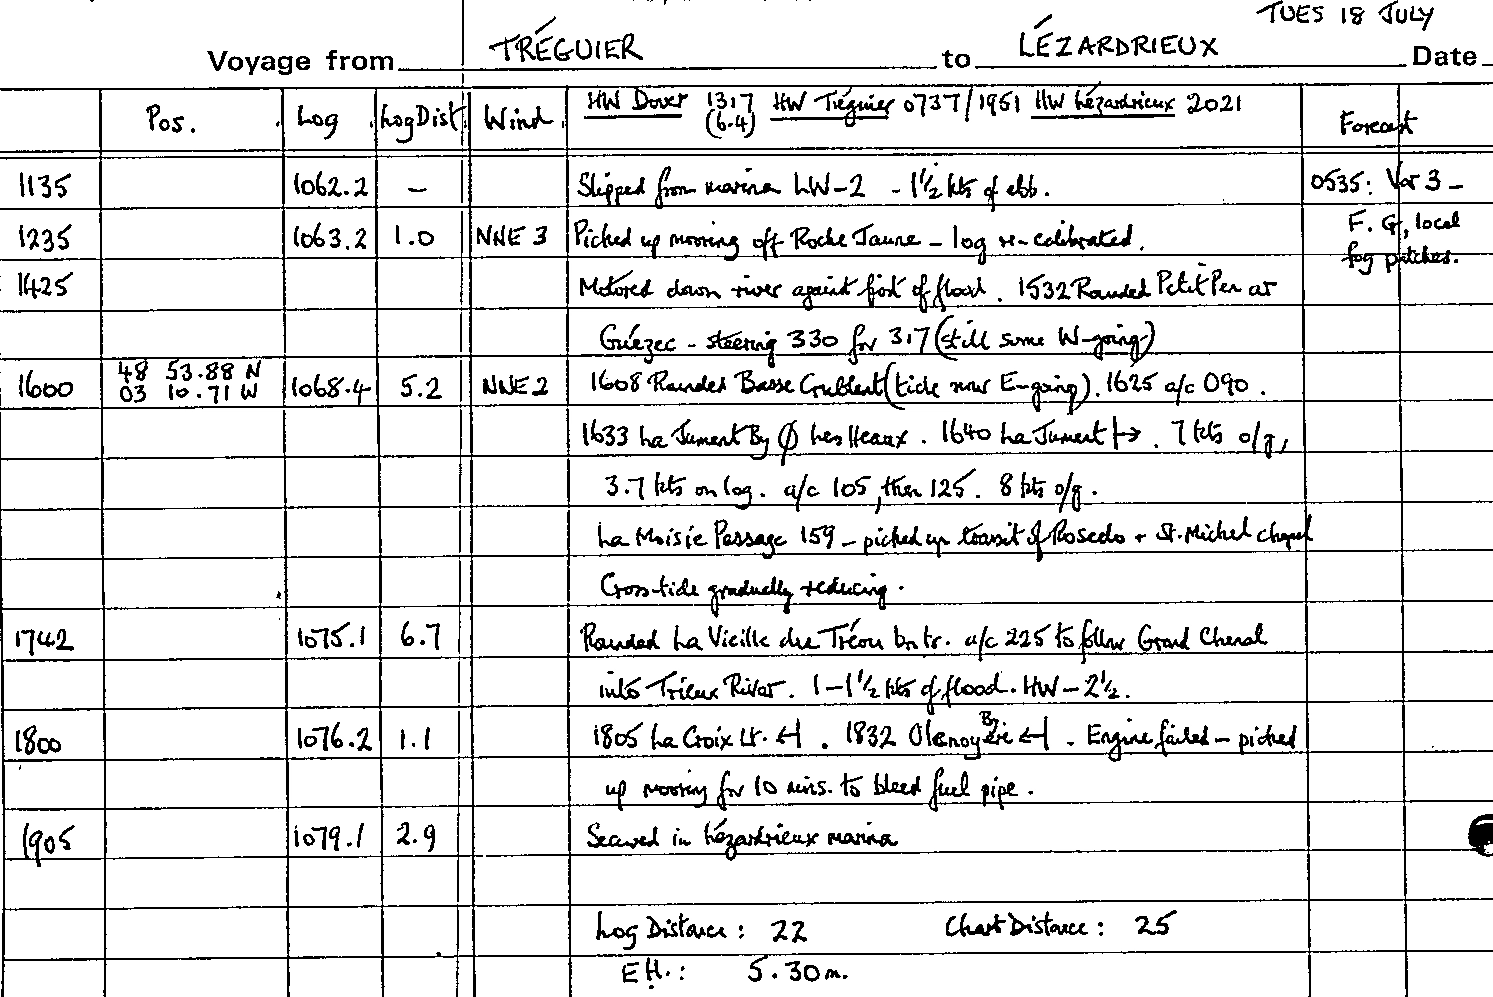 TUES 18 JULY
Voyage from TRÉGUIER to LÉZARDRIEUX Date
Pos. Log Log Dist Wind. HW Dover 1317 HW Tréguier 0737/1951 HW Lézardrieux 2021 Forecast
(6.4)
1135 1062.2 – Slipped from marina LW-2 - 1½ kts of ebb. 0535: Var 3 –
1235 1063.2 1.0 NNE 3 Picked up mooring off Roche Jaune – log re-calibrated. F. G, local
fog patches.
1425 Motored down river against first of flood. 1532 Rounded Petit Pen ar
Guézec – steering 330 for 317 (still some W-going)
48 53.88 N
1600 03 10.71 W 1068.4 5.2 NNE 2 1608 Rounded Basse Crublent (tide now E-going). 1625 a/c 090.
1633 La Jument By ϕ Les Heaux. 1640 La Jument |→. 7 kts o/g,
3.7 kts on log. a/c 105, then 125. 8 kts o/g.
La Moisie Passage 159 – picked up transit of Rosedo + St. Michel chapel
Cross-tide gradually reducing.
1742 1075.1 6.7 Rounded La Vieille du Tréou bn tr. a/c 225 to follow Grand Chenal
into Trieux River. 1–1½ kts of flood. HW – 2½.
1800 1076.2 1.1 1805 La Croix Lt. ←|. 1832 By. ←|. Engine failed – picked
up mooring for 10 mins. to bleed fuel pipe.
1905 1079.1 2.9 Secured in Lézardrieux marina
Log Distance: 22 Chart Distance: 25
E.H.: 5.30m.